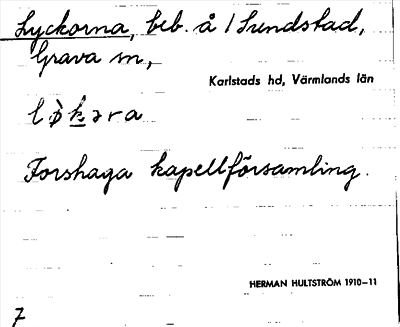 Lyckorna, beb. å 1 Sundstad,
Grava sn,
Karlstads hd, Värmlands län
Forshaga kapellförsamling.
HERMAN HULTSTRÖM 1910–11
7